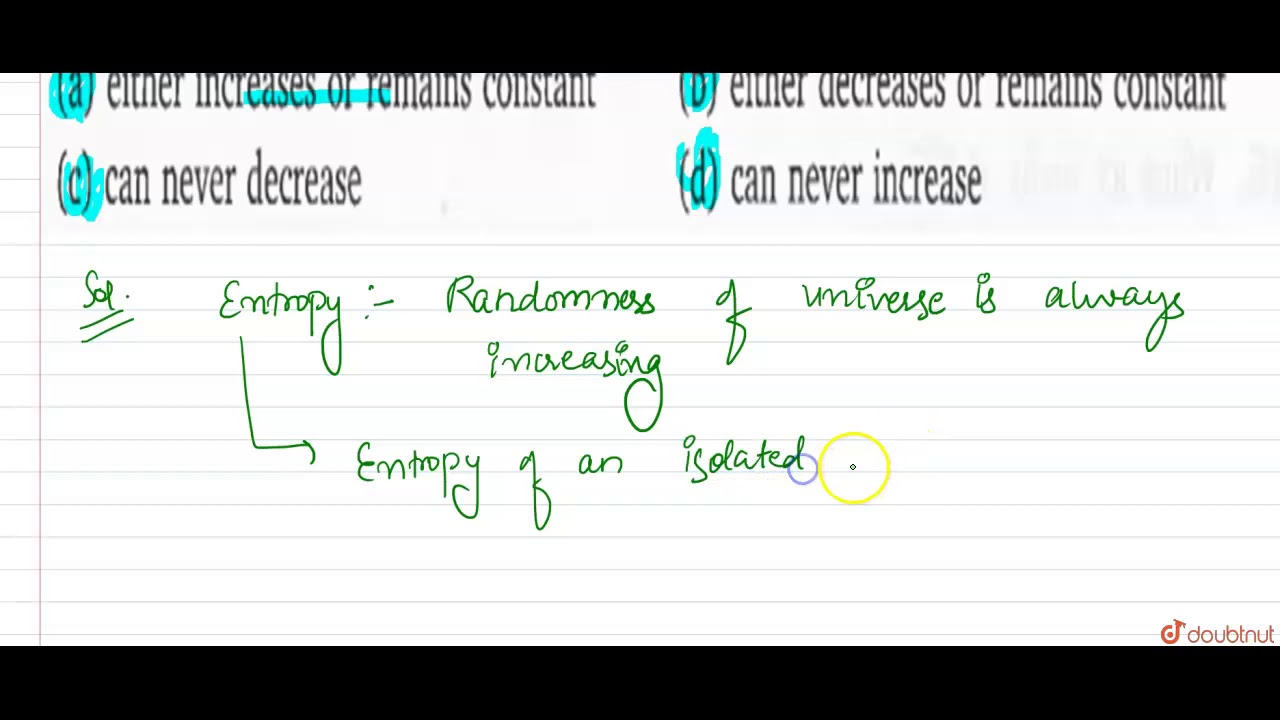 (a) either increases or remains constant (b) either decreases or remains constant
(c) can never decrease (d) can never increase
Sol. Entropy :- Randomness of universe is always
increasing
Entropy of an isolated
doubtnut